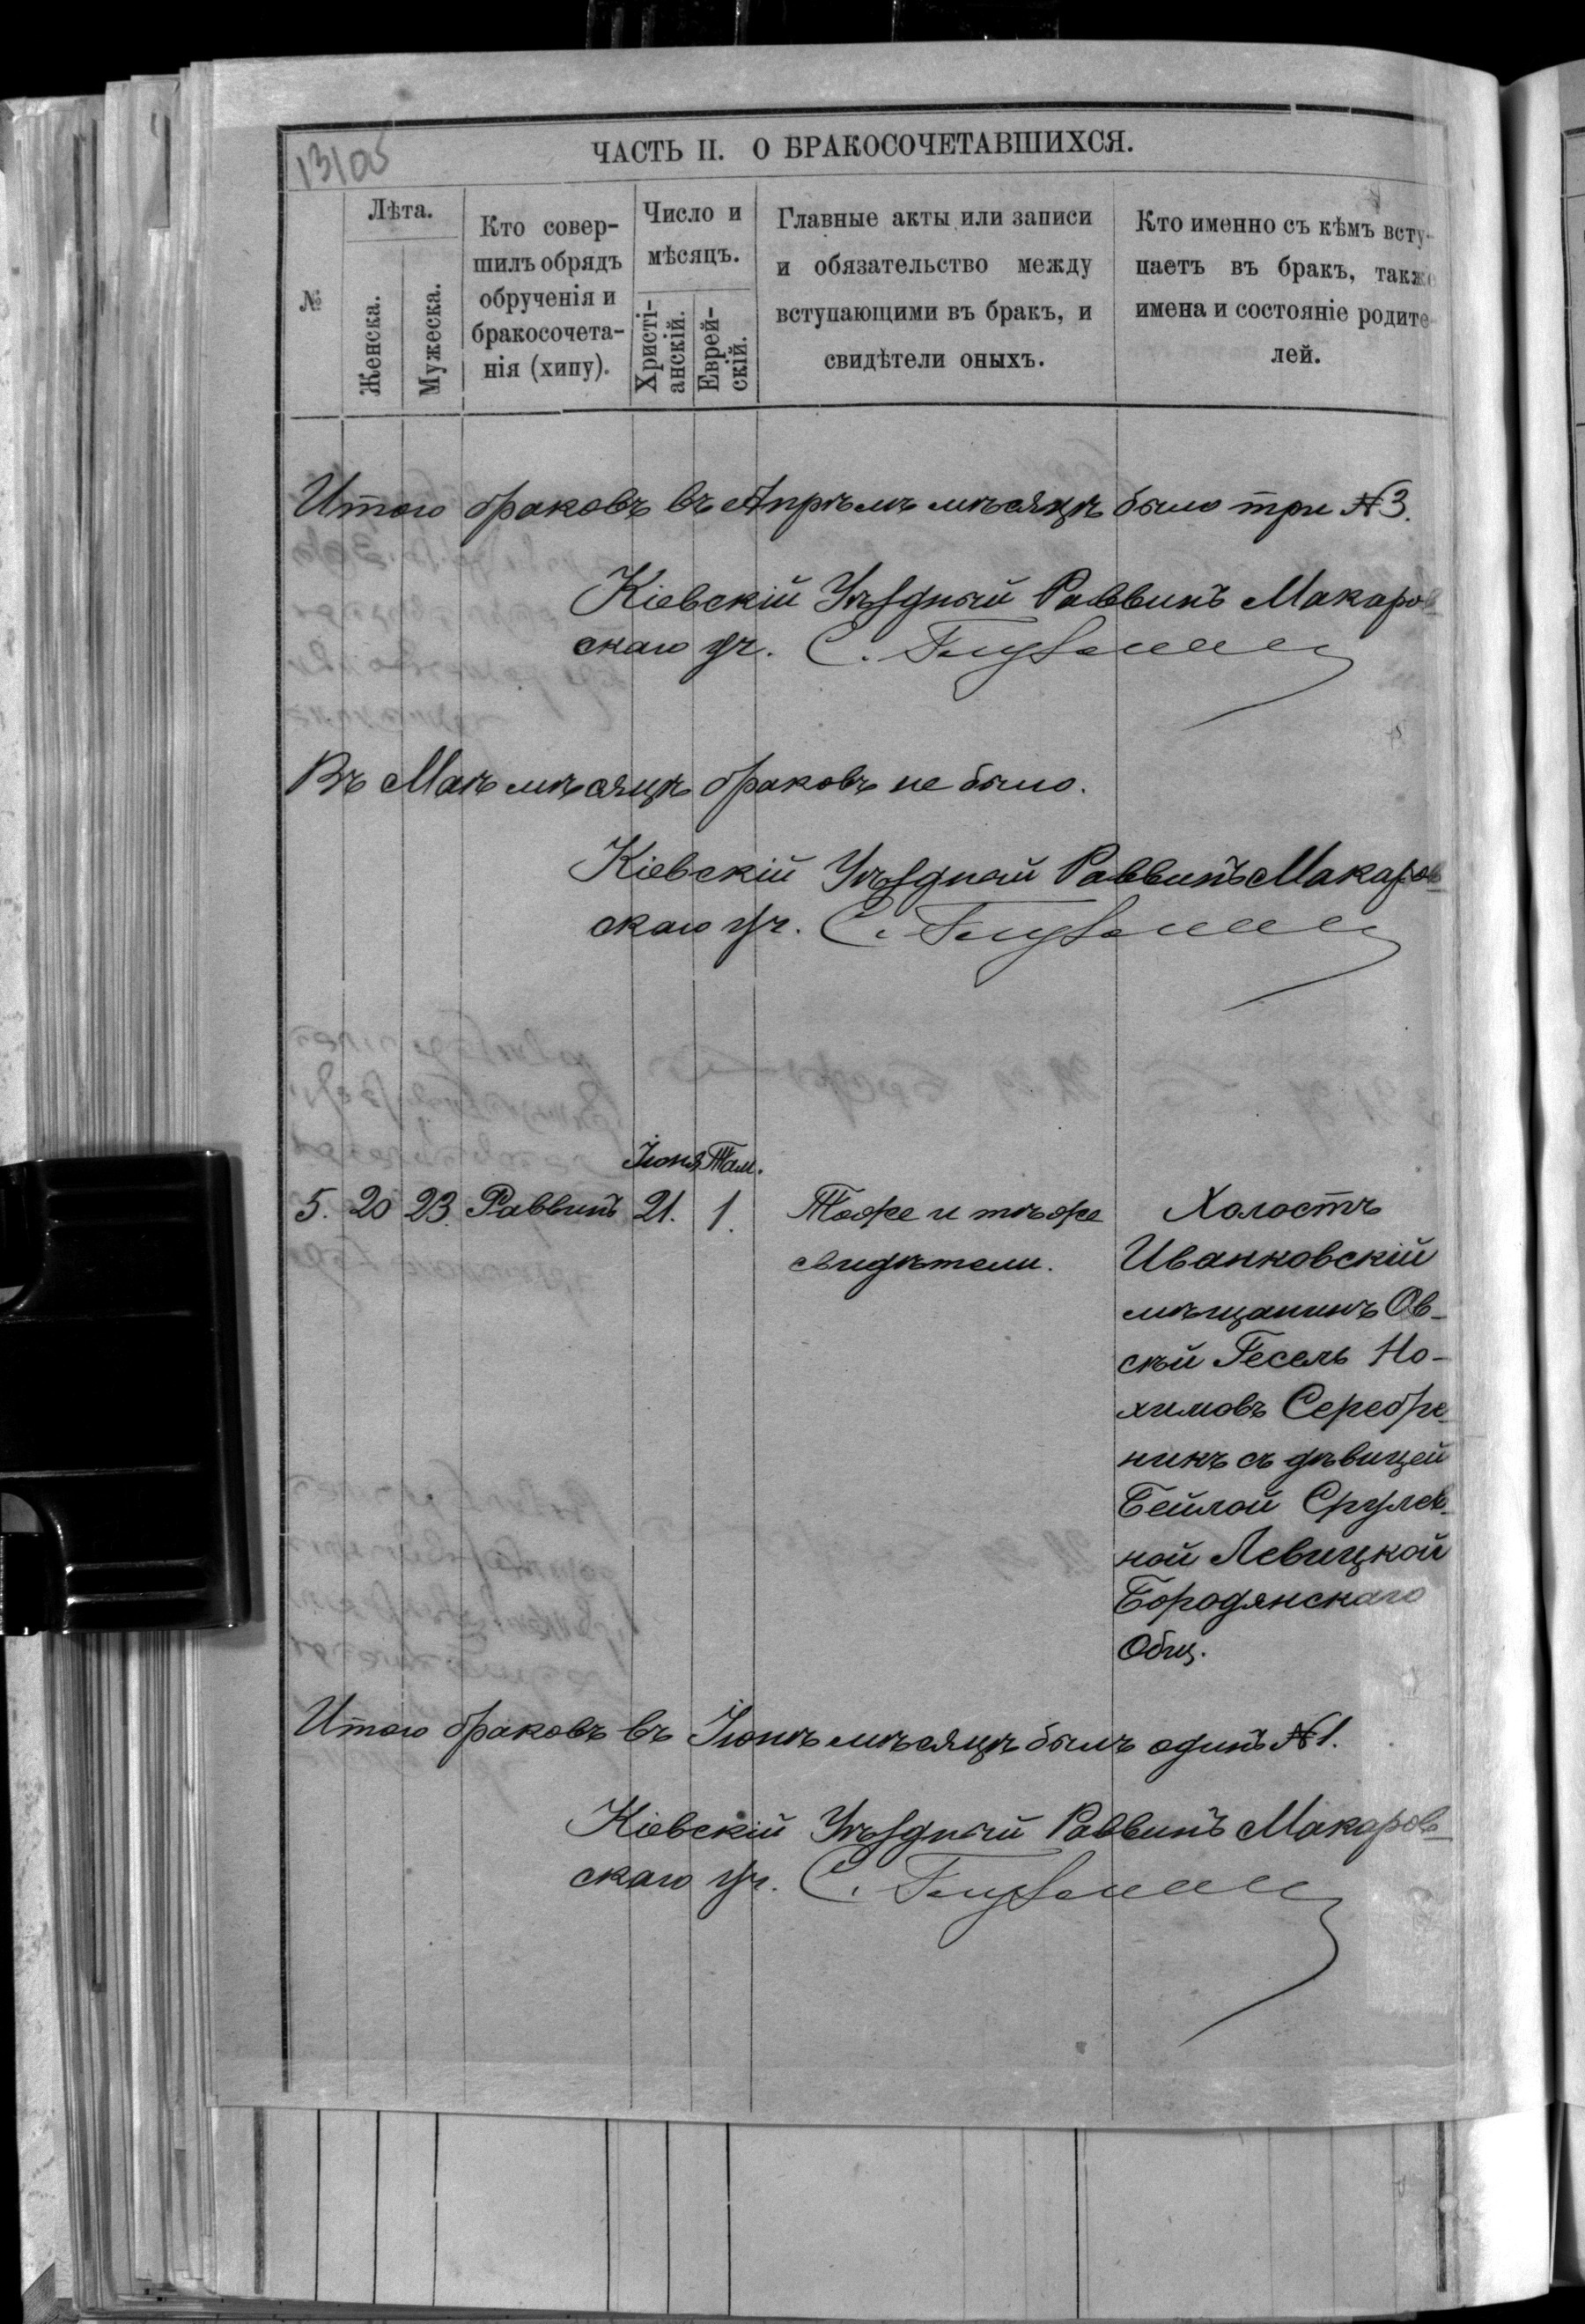 13105
ЧАСТЬ II. О БРАКОСОЧЕТАВШИХСЯ.
№
Лѣта.
Женска.
Мужеска.
Кто совер-
шилъ обрядъ
обрученія и
бракосочета-
нія (хипу).
Число и
мѣсяцъ.
Христі-
анскій.
Еврей-
скій.
Главные акты или записи
и обязательство между
вступающими въ бракъ, и
свидѣтели оныхъ.
Кто именно съ кѣмъ всту-
паетъ въ бракъ, также
имена и состояніе родите-
лей.
Итого браковъ въ Апрѣлѣ мѣсяцѣ было три №3.
Кіевскій Уѣздный Раввинъ Макаров
скаго уч.
Въ Маѣ мѣсяцѣ браковъ не было.
Кіевскій Уѣздный Раввинъ Макаров
скаго уч.
Іюня Там.
5. 20 23. Раввинъ 21. 1. Тоже и тѣже
свидѣтели.
Холостъ
Иванковскій
мѣщанинъ Ов-
сѣй Гесель Но-
химовъ Серебре-
никъ съ дѣвицей
Бейлой Срулев-
ной Левицкой
Бородянскаго
Общ.
Итого браковъ въ Іюнѣ мѣсяцѣ былъ одинъ №1.
Кіевскій Уѣздный Раввинъ Макаров-
скаго уч.